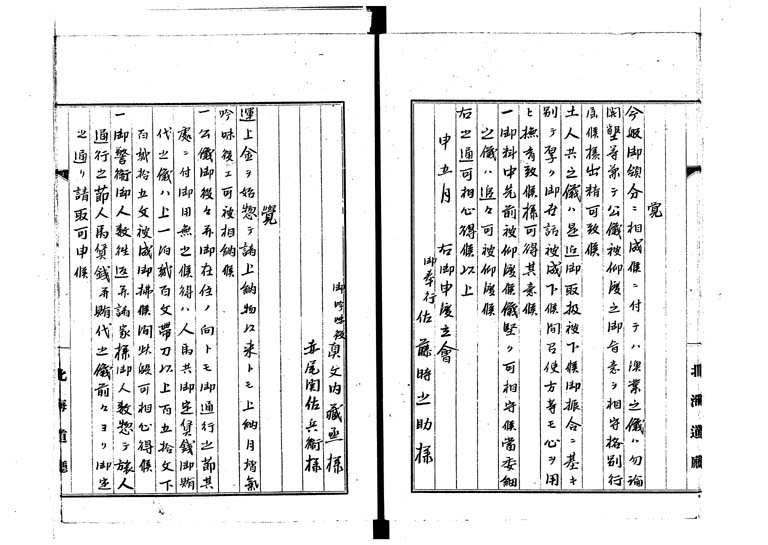 覚
今般御領分ニ相成候ニ付テハ漁業之儀ハ勿論
開墾等兼テ公儀被仰渡之御旨意ヲ相守格別行
届候様出精可致候
土人共之儀ハ是迄御取扱被下候御振合ニ基キ
別テ厚ク御世話被成下候間召使方等モ心ヲ用
ヒ撫育致候様可得其意候
一御料中先前被仰渡候儀堅ク可相守候尚委細
之儀ハ追々可被仰渡候
右之通可相心得候以上
申五月 右御申渡立會
御奉行佐藤時之助様
御吟味役真文内蔵丞様
赤尾関佐兵衛様
覺
運上金ヲ始惣テ諸上納物以来トモ上納月堵氣
吟味後エ可被相納候
一公儀御役々并御在住ノ向トモ御通行之節其
處ニ付御用無之候得ハ人馬共御定賃錢御賄
代之儀ハ上一泊貮百文帯刀以上百五拾文下
百貮拾五文被成御拂候間此段可相心得候
一御警衛御人数往返并諸家様御人数惣テ旅人
通行之節人馬賃錢并賄代之儀前々ヨリ御定
之通リ請取可申候
北海道廳
北海道廳